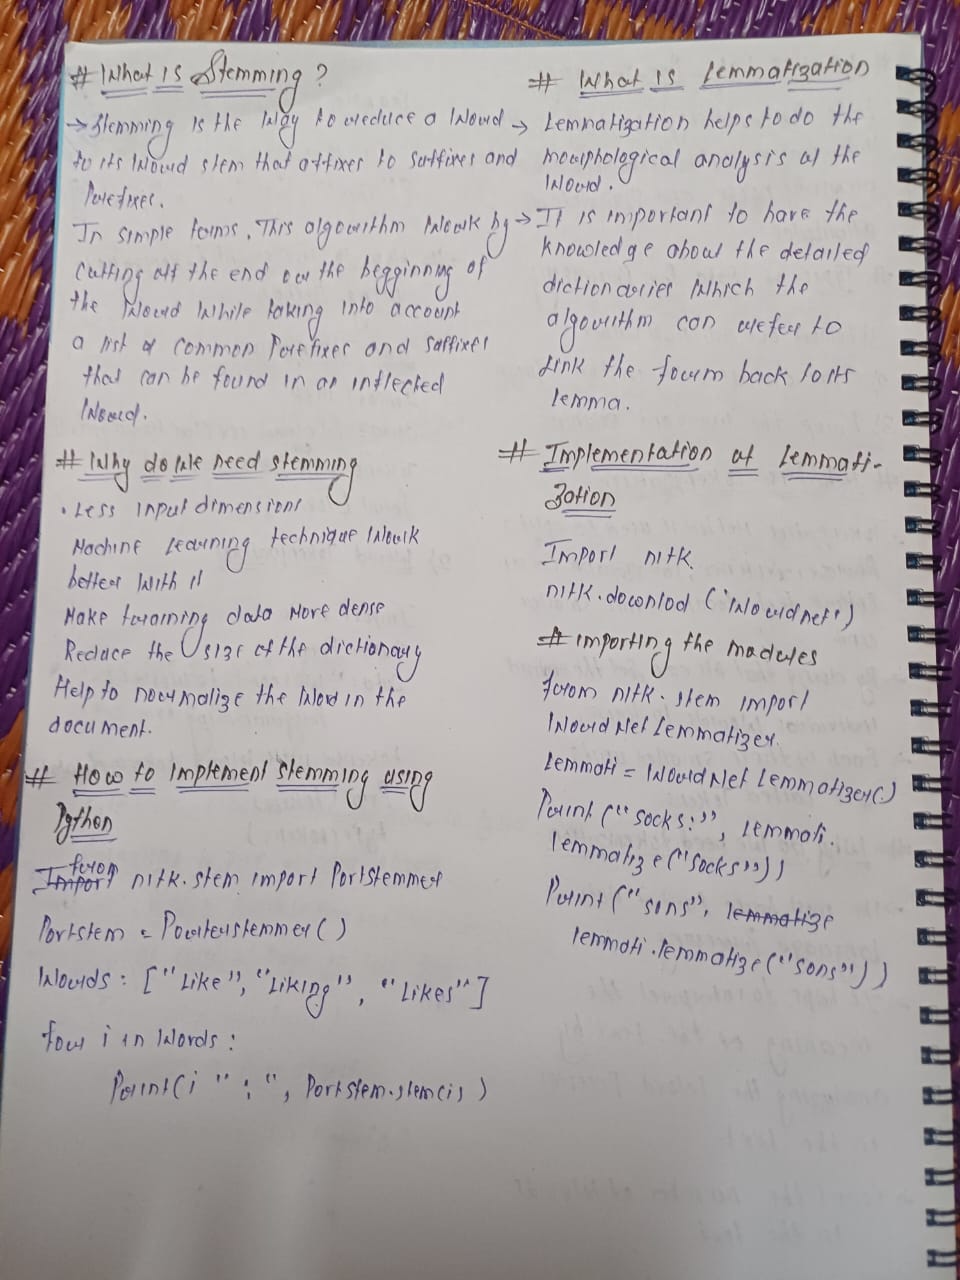 # What is Stemming ?
→ Stemming is the way to reduce a word
to its word stem that affixes to suffixes and
Prefixes.
In simple terms, This algorithm work by
cutting off the end or the beggining of
the word while taking into account
a list of common Prefixes and suffixes
that can be found in an inflected
word.
# Why do we need stemming
• Less input dimensions
Machine Learning technique work
better with it
Make training data more dense
Reduce the size of the dictionary
Help to normalize the word in the
document.
# How to implement stemming using
Python
from nltk.stem import Portstemmer
Portstem = Porterstemmer()
Words : ["Like", "Liking", "Likes"]
for i in words :
Print(i " : ", Portstem.stem(i))
# What is Lemmatization
→ Lemmatization helps to do the
morphological analysis of the
word.
→ It is important to have the
knowledge about the detailed
dictionaries which the
algorithm can refer to
link the form back to its
lemma.
# Implementation of Lemmati-
zation
Import nltk
nltk.downlod ('wordnet')
# importing the modules
from nltk.stem import
WordNetLemmatizer
Lemmati = WordNetLemmatizer()
Print ("socks:", lemmati.
lemmatize("socks"))
Print ("sons", lemmatize
lemmati.lemmatize("sons"))